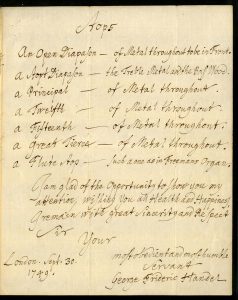 Stops
An Open Diapason — of Metal throughout to be in Front.
a Stopt Diapason — the Treble Metal and the Bass Wood.
a Principal — of Metal throughout.
a Twelfth — of Metal throughout.
a Fifteenth — of Metal throughout.
a Great Tierce — of Metal throughout.
a Flute Stop — Such a one as in Freemans Organ.
I am glad of the Opportunity to show you my
attention, wishing you all Health and Happiness,
I remain with great Sincerity and Respect
Sir
Your
most obedient and most humble
Servant
London. Sept. 30
1749.
George Frideric Handel